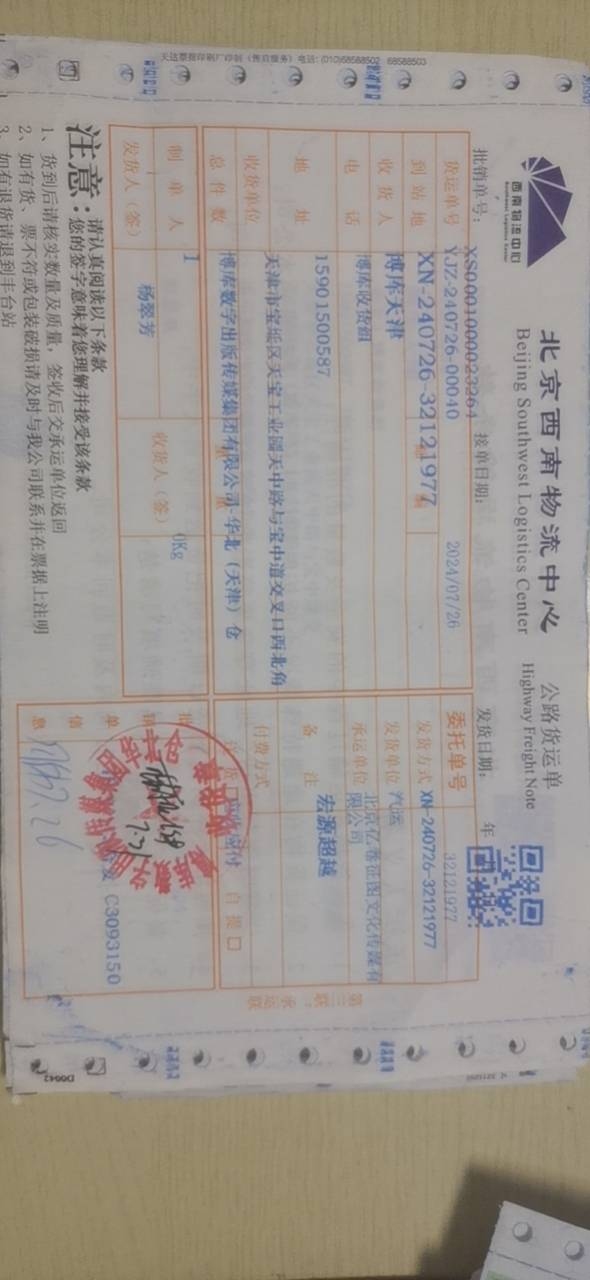 西南物流中心
Southwest Logistics Center
北京西南物流中心
Beijing Southwest Logistics Center
公路货运单
Highway Freight Note
批销单号: XS0001000023261 接单日期: 2024/07/26 发货日期: 年
货运单号 YJZ-240726-00040
委托单号 32121977
到站地 XN-240726-32121977
发货方式 XN-240726-32121977
收货人 博库天津
发货单位 汽运
电话 博库收货组
承运单位 北京亿卷征图文化传媒有限公司
15901500587
备注 宏源超越
地址 天津市宝坻区天宝工业园天中路与宝中道交叉口西北角
付费方式
收货单位
博库数字出版传媒集团有限公司-华北(天津)仓
自提口
总件数
制单人 1 0Kg
发货人(签) 杨翠芳 收货人(签)
批销单信息
C3093150
7.26
注意:
请认真阅读以下条款
您的签字意味着您理解并接受该条款
1、货到后请核实数量及质量,签收后交承运单位返回
2、如有货、票不符或包装破损请及时与我公司联系并在票据上注明
3、如有退货请退到丰台站
第三联:承运联
天达票据印刷厂印制(售后服务)电话:(010)68588502 68588503